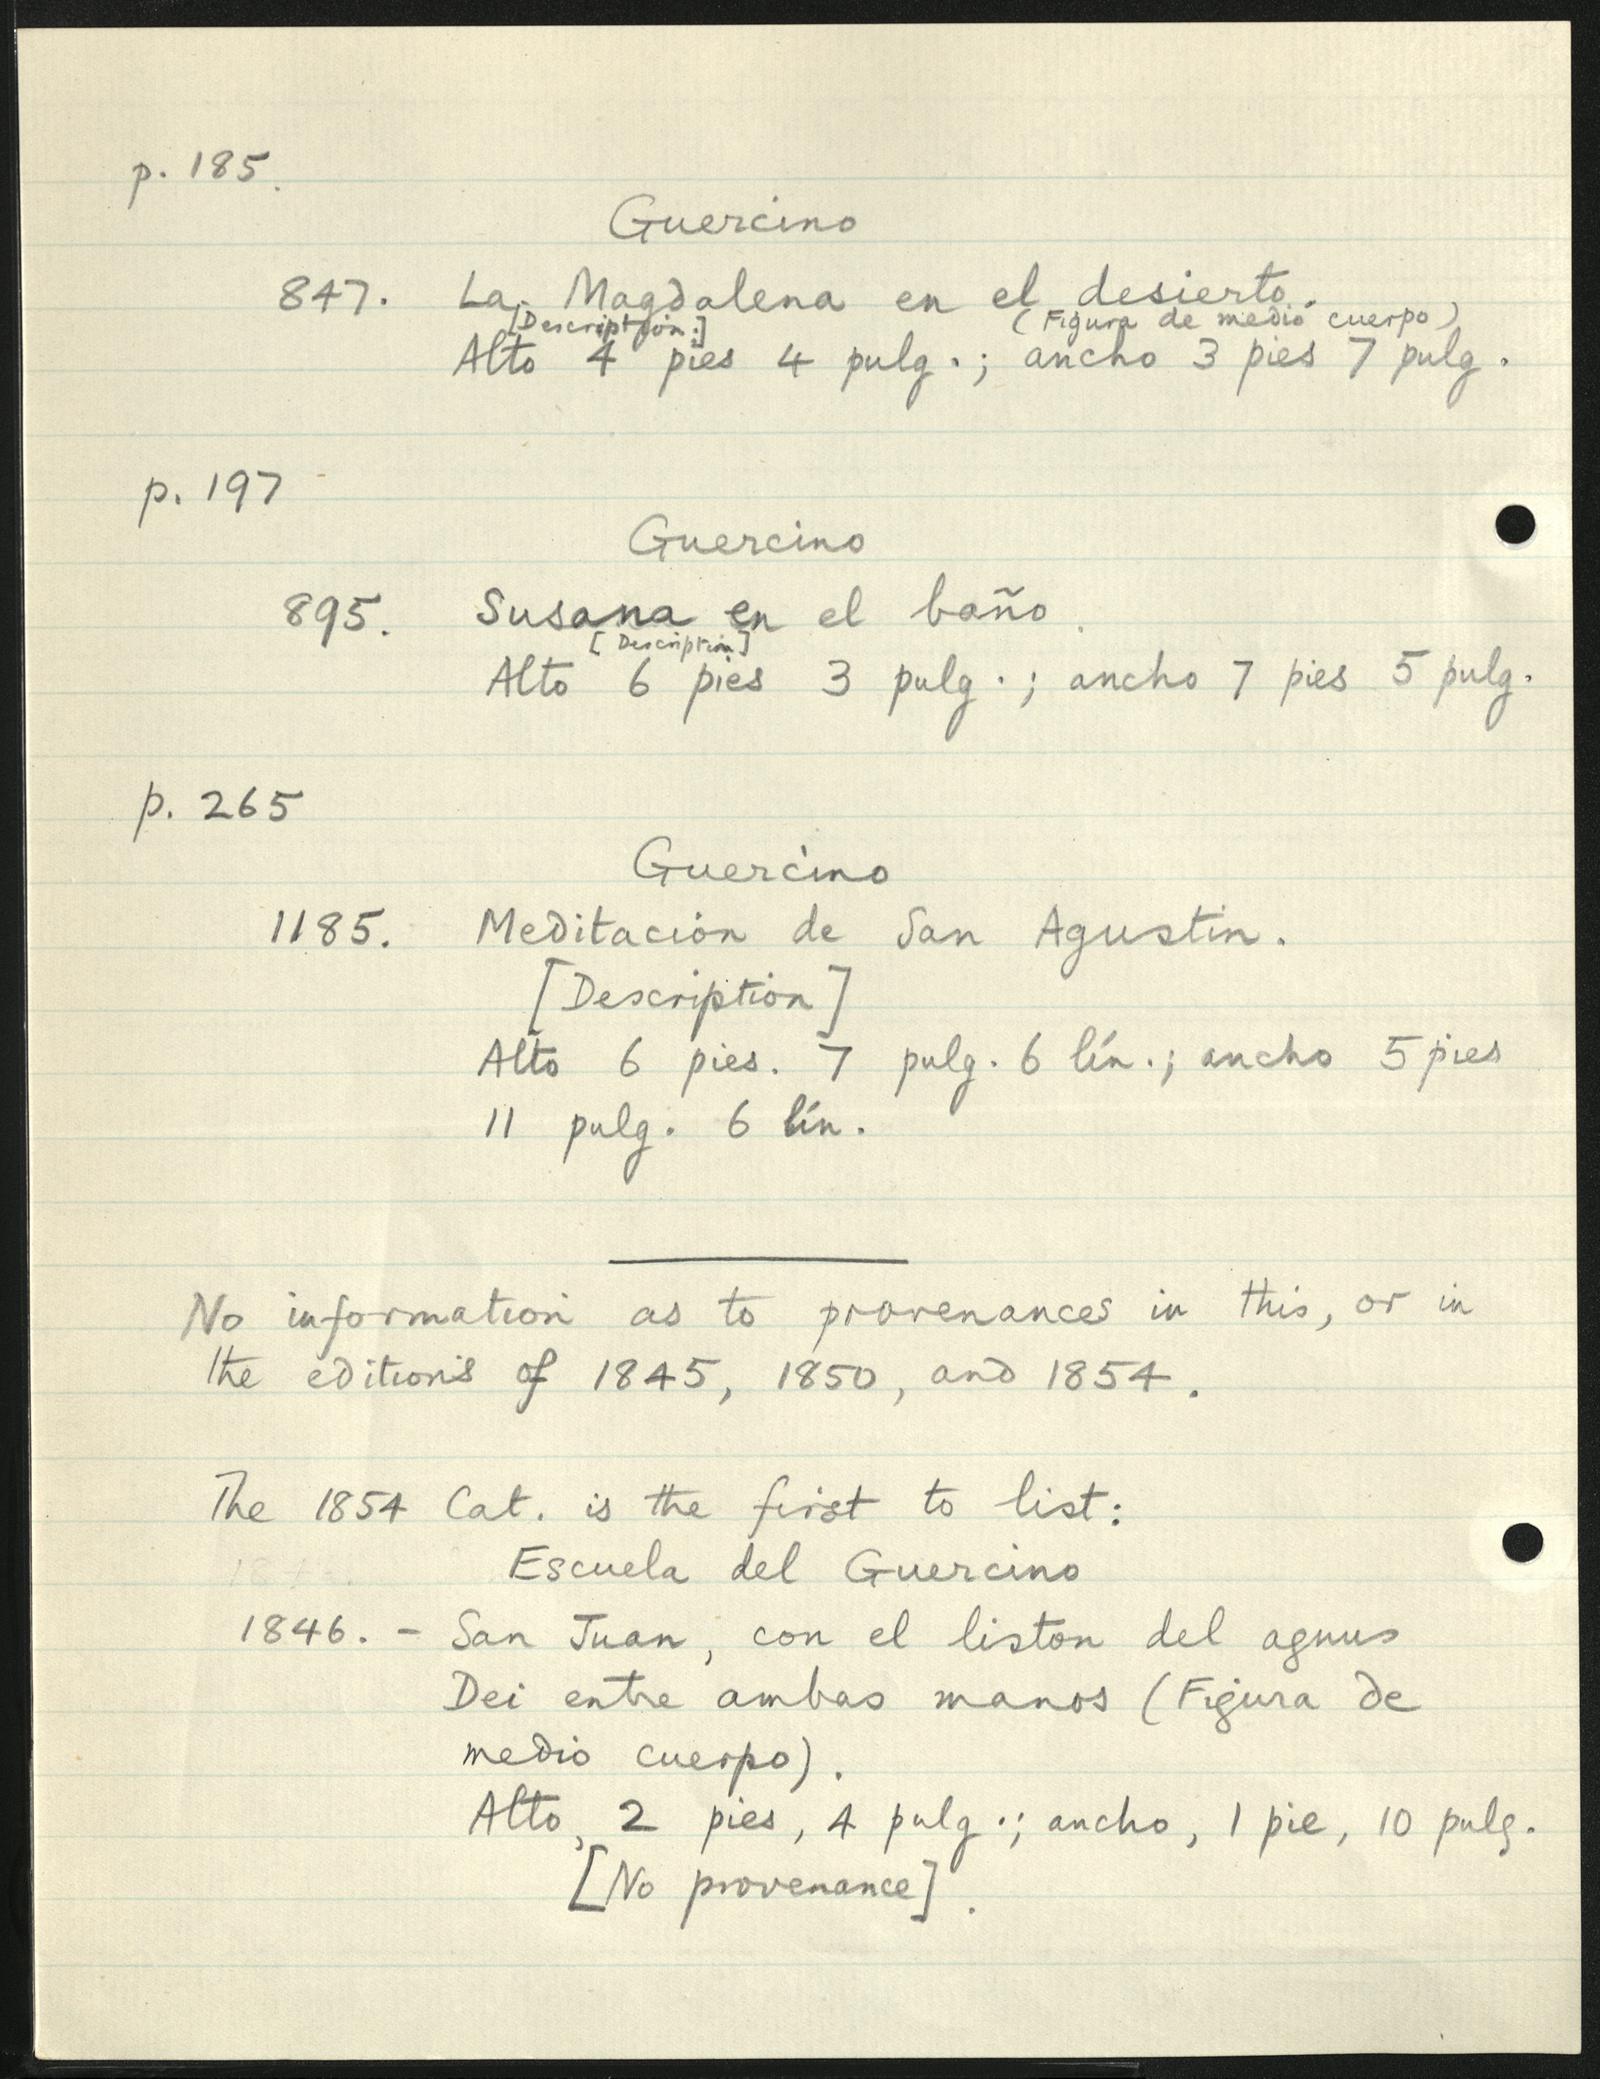 p. 185.
Guercino
847. La Magdalena en el desierto.
[Description.] (Figura de medio cuerpo)
Alto 4 pies 4 pulg.; ancho 3 pies 7 pulg.
p. 197
Guercino
895. Susana en el baño.
[Description]
Alto 6 pies 3 pulg.; ancho 7 pies 5 pulg.
p. 265
Guercino
1185. Meditación de San Agustin.
[Description]
Alto 6 pies. 7 pulg. 6 lín.; ancho 5 pies
11 pulg. 6 lín.
No information as to provenances in this, or in
the editions of 1845, 1850, and 1854.
The 1854 Cat. is the first to list:
Escuela del Guercino
1846. - San Juan, con el liston del agnus
Dei entre ambas manos (Figura de
medio cuerpo).
Alto, 2 pies, 4 pulg.; ancho, 1 pie, 10 pulg.
[No provenance].